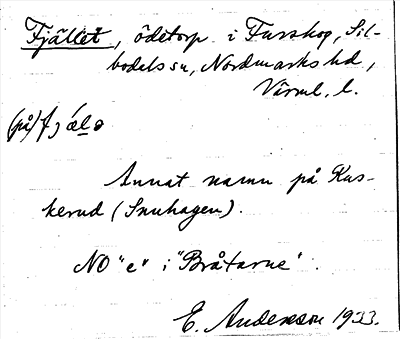 Fjället, ödetorp i Furskog, Sil-
bodals sn, Nordmarks hd,
Värml. l.
(på) fjälə
Annat namn på Kus-
kerud (Snuhagen).
NO "e" i "Bråtarne".
E. Anderson 1933.